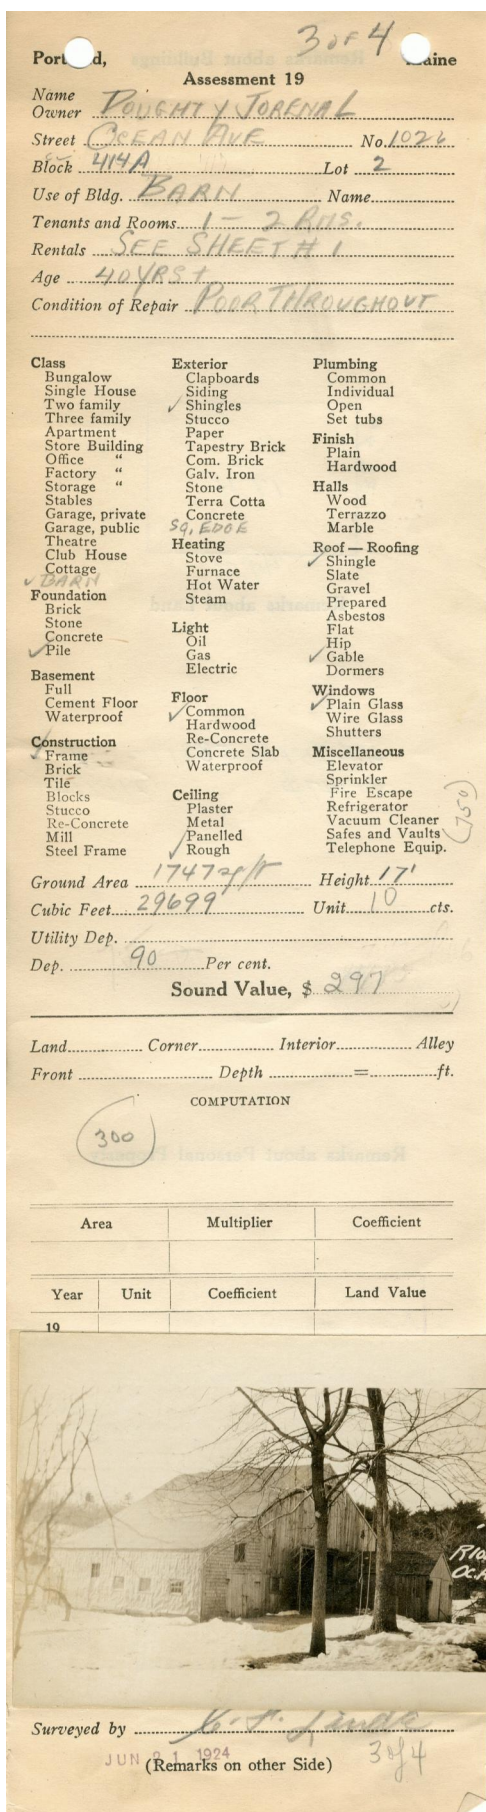 3 OF 4
Port d, aine
Assessment 19
Name
Owner DOUGHTY JORENAL
Street OCEAN AVE No. 1026
Block 414A Lot 2
Use of Bldg. BARN Name
Tenants and Rooms 1 - 2 RMS.
Rentals SEE SHEET # 1
Age 40 YRS +
Condition of Repair POOR THROUGHOUT
Class
Bungalow
Single House
Two family
Three family
Apartment
Store Building
Office "
Factory "
Storage "
Stables
Garage, private
Garage, public
Theatre
Club House
Cottage
✓ BARN
Foundation
Brick
Stone
Concrete
✓ Pile
Basement
Full
Cement Floor
Waterproof
Construction
✓ Frame
Brick
Tile
Blocks
Stucco
Re-Concrete
Mill
Steel Frame
Exterior
Clapboards
Siding
✓ Shingles
Stucco
Paper
Tapestry Brick
Com. Brick
Galv. Iron
Stone
Terra Cotta
Concrete
SQ. EDGE
Heating
Stove
Furnace
Hot Water
Steam
Light
Oil
Gas
Electric
Floor
✓ Common
Hardwood
Re-Concrete
Concrete Slab
Waterproof
Ceiling
Plaster
Metal
Panelled
✓ Rough
Plumbing
Common
Individual
Open
Set tubs
Finish
Plain
Hardwood
Halls
Wood
Terrazzo
Marble
Roof — Roofing
✓ Shingle
Slate
Gravel
Prepared
Asbestos
Flat
Hip
✓ Gable
Dormers
Windows
✓ Plain Glass
Wire Glass
Shutters
Miscellaneous
Elevator
Sprinkler
Fire Escape
Refrigerator
Vacuum Cleaner
Safes and Vaults
Telephone Equip.
(750)
Ground Area 1747 sq/ft Height 17'
Cubic Feet 29699' Unit 10 cts.
Utility Dep.
Dep. 90 Per cent.
Sound Value, $ 297
Land Corner Interior Alley
Front Depth = ft.
COMPUTATION
300
Area Multiplier Coefficient
Year Unit Coefficient Land Value
19
Surveyed by
JUN 21 1924
(Remarks on other Side)
3 of 4